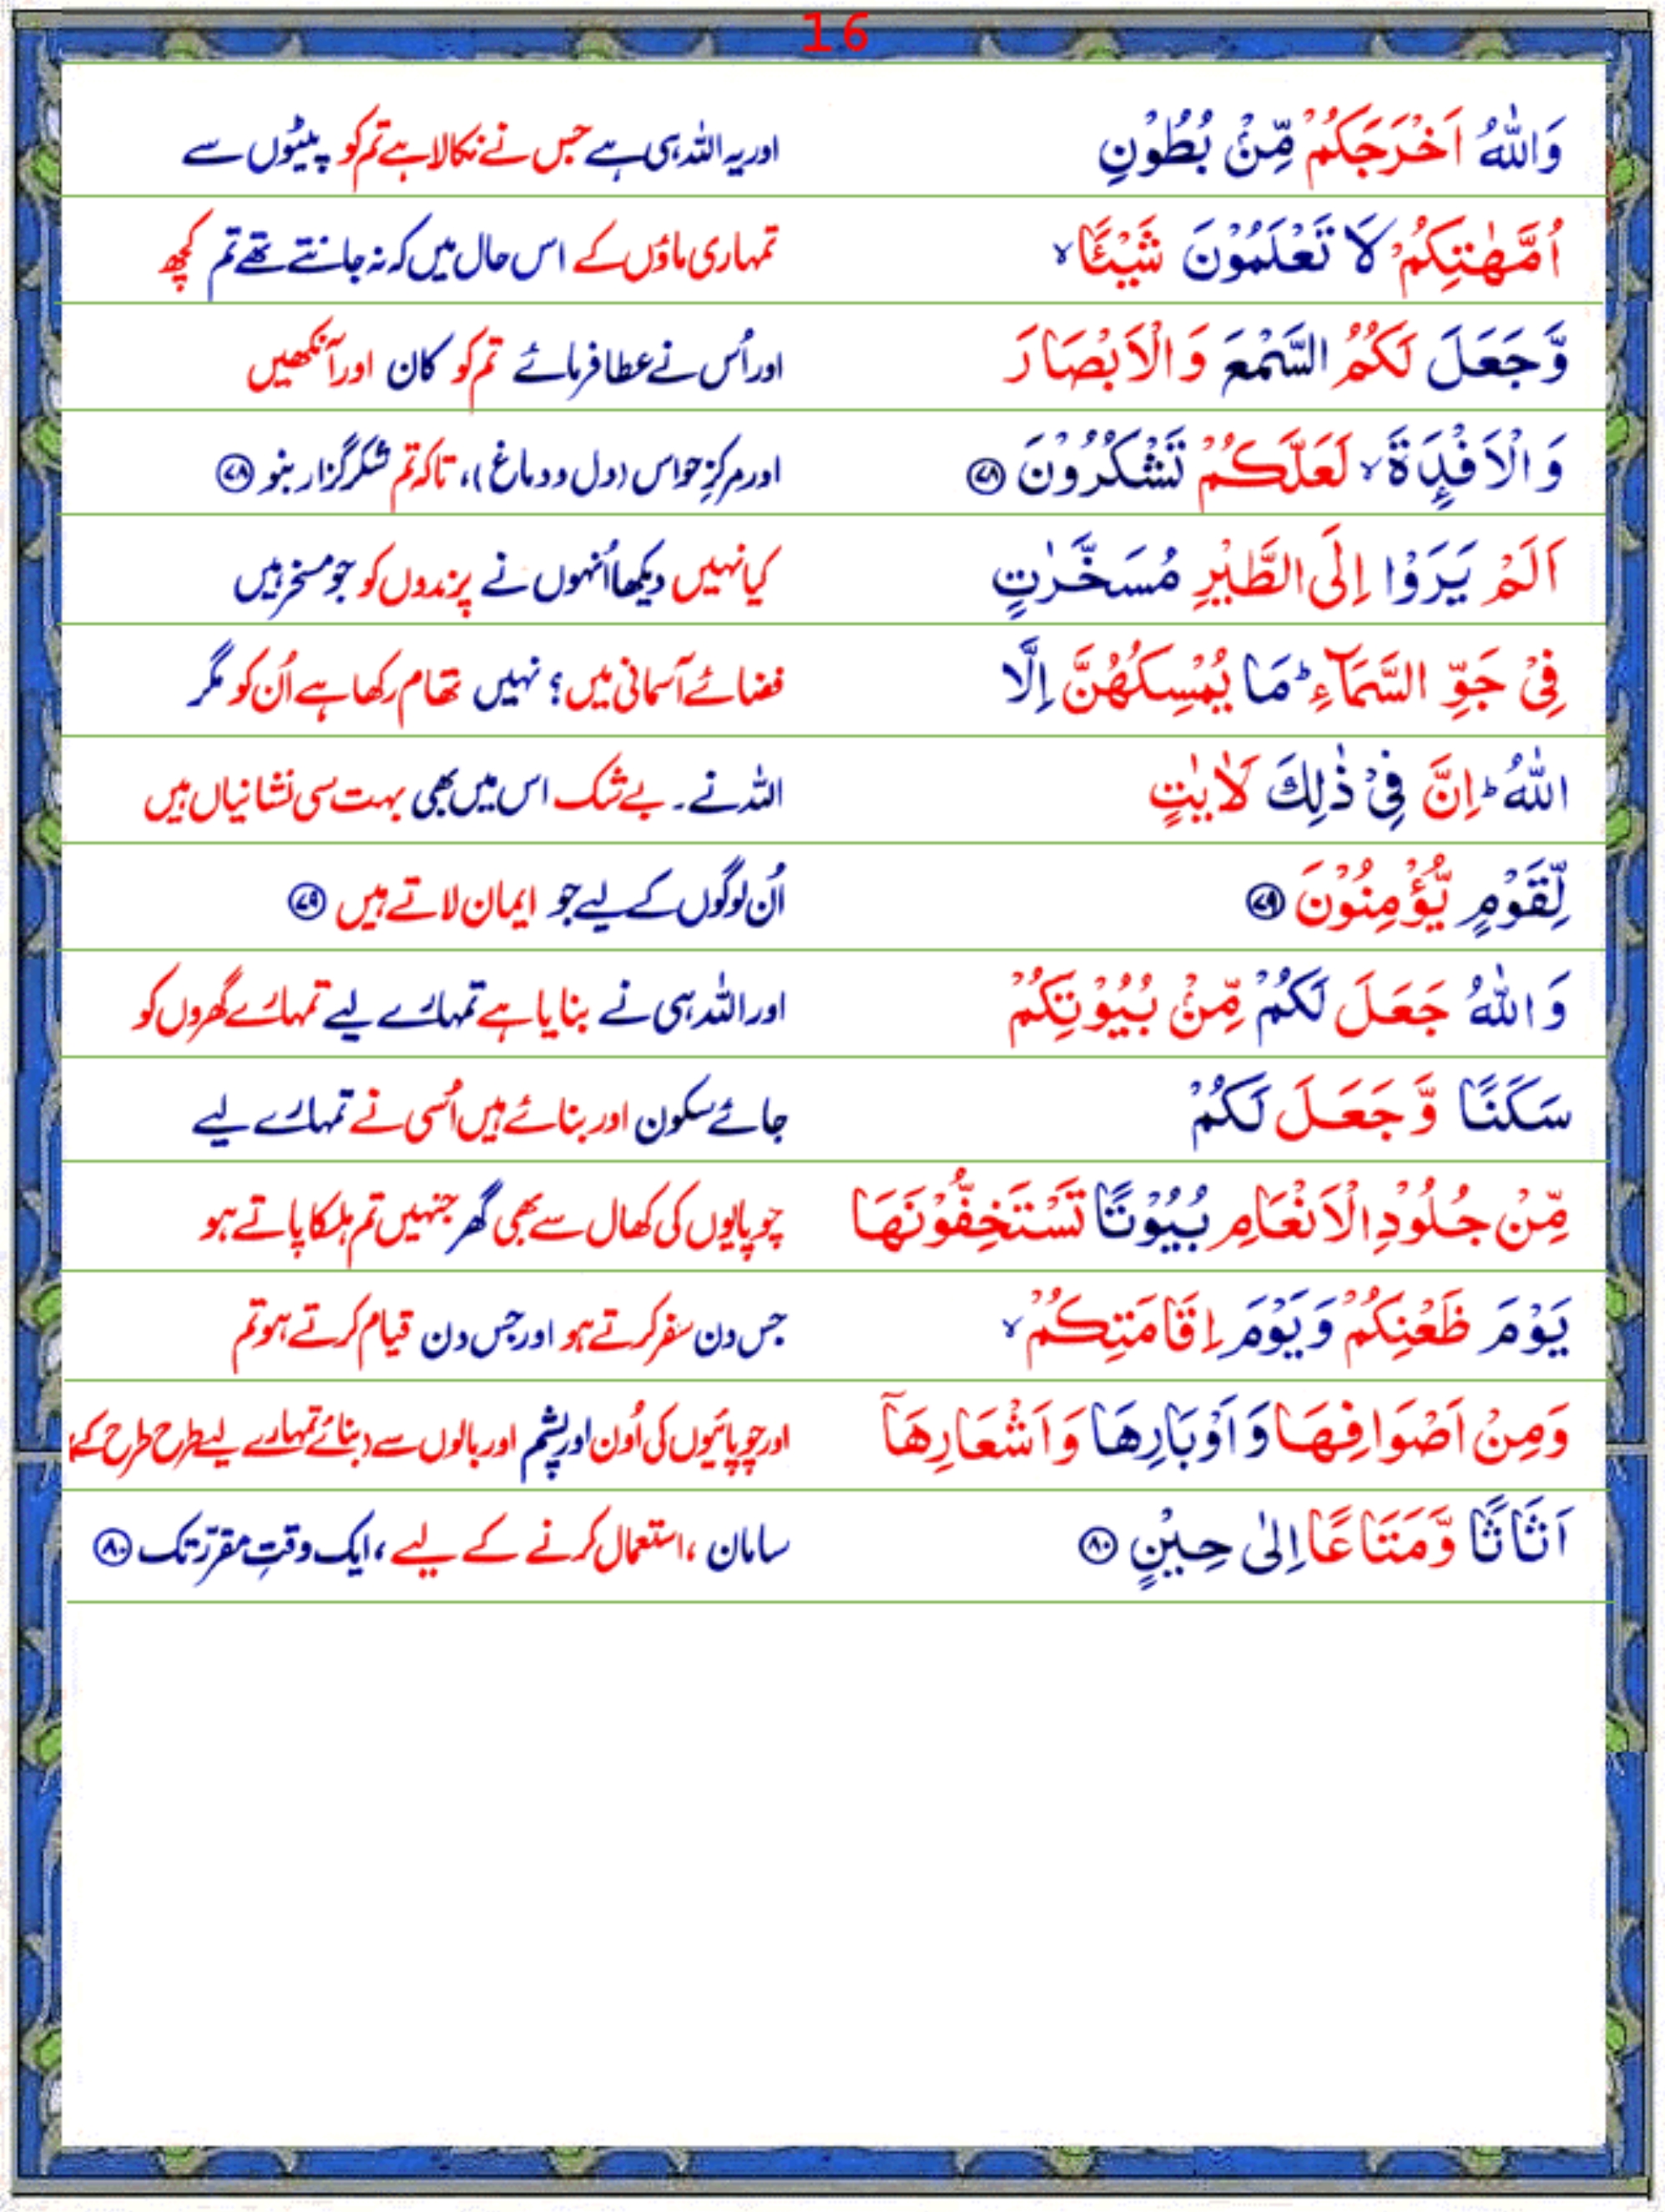 16
وَاللّٰهُ اَخْرَجَكُمْ مِّنْۢ بُطُوْنِ اور یہ اللہ ہی ہے جس نے نکالا ہے تم کو پیٹوں سے
اُمَّهٰتِكُمْ لَا تَعْلَمُوْنَ شَيْـًٔا ۙ تمہاری ماؤں کے اس حال میں کہ نہ جانتے تھے تم کچھ
وَّجَعَلَ لَكُمُ السَّمْعَ وَالْاَبْصَارَ اور اُس نے عطا فرمائے تم کو کان اور آنکھیں
وَالْاَفْـِٕدَةَ ۙ لَعَلَّكُمْ تَشْكُرُوْنَ ﴿۷۸﴾ اور مرکزِ حواس (دل و دماغ)، تاکہ تم شکر گزار بنو ﴿۷۸﴾
اَلَمْ يَرَوْا اِلَى الطَّيْرِ مُسَخَّرٰتٍ کیا نہیں دیکھا اُنہوں نے پرندوں کو جو مسخر ہیں
فِيْ جَوِّ السَّمَآءِ ؕ مَا يُمْسِكُهُنَّ اِلَّا فضائے آسمانی میں؟ نہیں تھام رکھا ہے اُن کو مگر
اللّٰهُ ؕ اِنَّ فِيْ ذٰلِكَ لَاٰيٰتٍ اللہ نے۔ بے شک اس میں بھی بہت سی نشانیاں ہیں
لِّقَوْمٍ يُّؤْمِنُوْنَ ﴿۷۹﴾ اُن لوگوں کے لیے جو ایمان لاتے ہیں ﴿۷۹﴾
وَاللّٰهُ جَعَلَ لَكُمْ مِّنْۢ بُيُوْتِكُمْ اور اللہ ہی نے بنایا ہے تمہارے لیے تمہارے گھروں کو
سَكَنًا وَّجَعَلَ لَكُمْ جائے سکون اور بنائے ہیں اُسی نے تمہارے لیے
مِّنْ جُلُوْدِ الْاَنْعَامِ بُيُوْتًا تَسْتَخِفُّوْنَهَا چوپایوں کی کھال سے بھی گھر جنہیں تم ہلکا پاتے ہو
يَوْمَ ظَعْنِكُمْ وَيَوْمَ اِقَامَتِكُمْ ۙ جس دن سفر کرتے ہو اور جس دن قیام کرتے ہو تم
وَمِنْ اَصْوَافِهَا وَاَوْبَارِهَا وَاَشْعَارِهَاۤ اور چوپائیوں کی اُون اور پشم اور بالوں سے (بنائے تمہارے لیے طرح طرح کے)
اَثَاثًا وَّمَتَاعًا اِلٰى حِيْنٍ ﴿۸۰﴾ سامان ،استعمال کرنے کے لیے ،ایک وقتِ مقرّر تک ﴿۸۰﴾